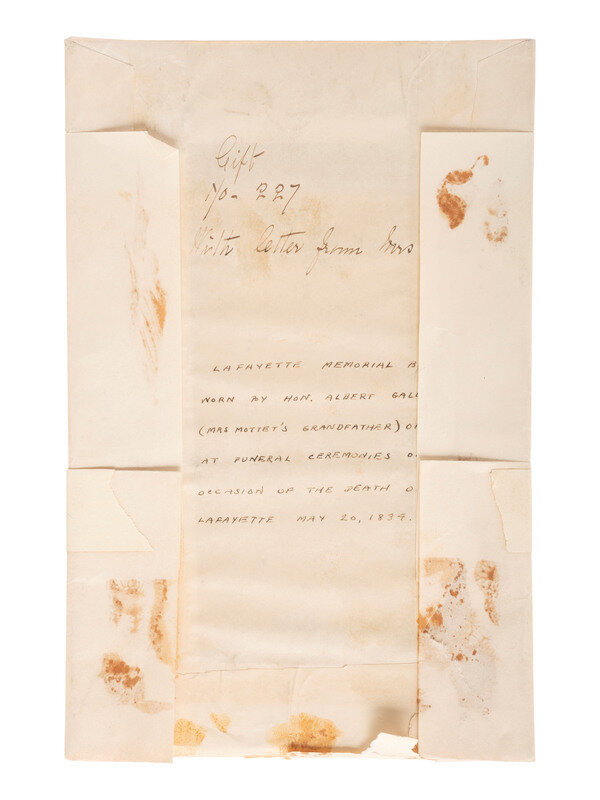 Gift
No. 227
With letter from Mrs
LAFAYETTE MEMORIAL B
WORN BY HON. ALBERT GALL
(MRS MOTTET'S GRANDFATHER) O
AT FUNERAL CEREMONIES O
OCCASION OF THE DEATH O
LAFAYETTE MAY 20, 1834.